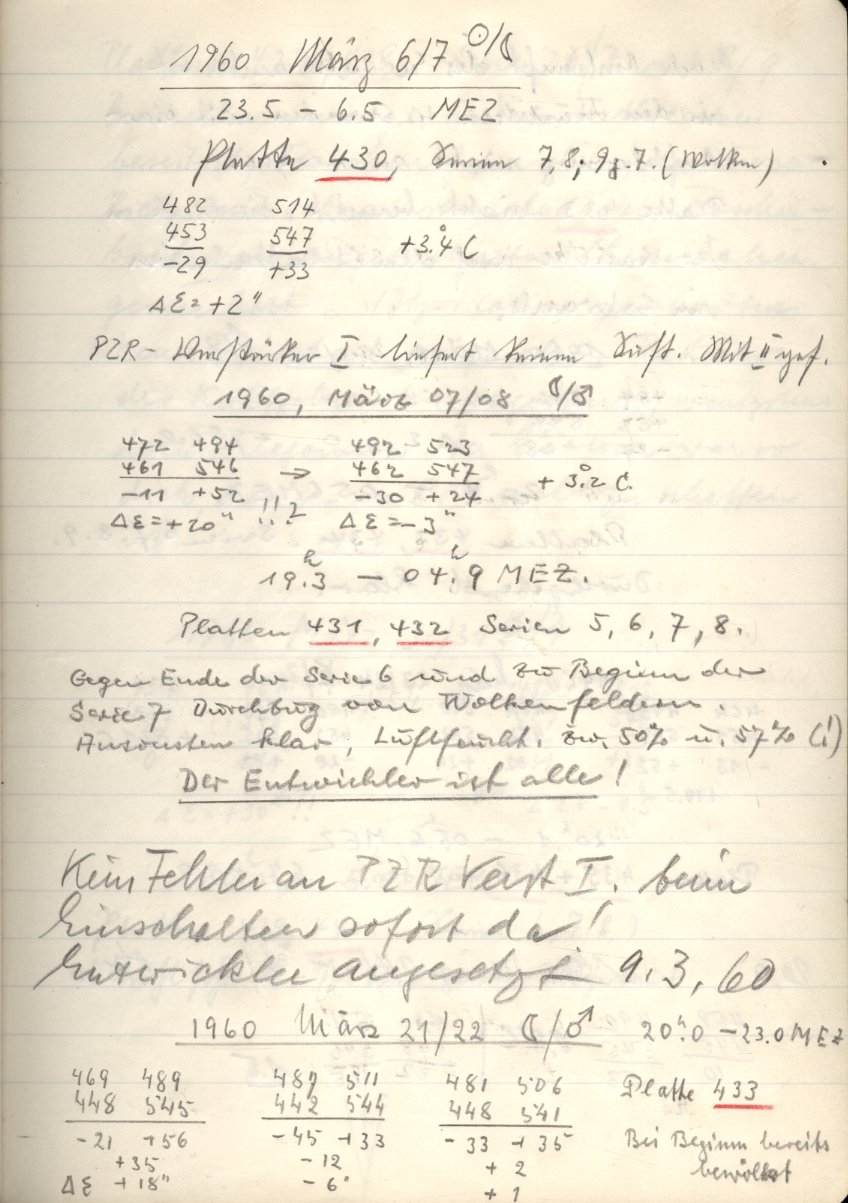 1960 März 6/7 ☉/☾
23.5 – 6.5 MEZ
Platte 430, Serien 7, 8; 9z.T. (Wolken)
482 514
453 547 +3.°4 C
-29 +33
Δε = +2"
PZR – Verstärker I liefert keinen Saft. Mit II gef.
1960, März 07/08 ☾/♂
472 494 492 523
461 546 → 462 547 + 3.°2 C.
-11 +52 -30 +24
Δε = +20" !!? Δε = -3"
19.ʰ3 – 04.ʰ9 MEZ.
Platten 431, 432 Serien 5, 6, 7, 8.
Gegen Ende der Serie 6 und zu Beginn der
Serie 7 Durchzug von Wolkenfeldern.
Ansonsten klar, Luftfeucht. zw. 50% u. 57% (!)
Der Entwickler ist alle!
Kein Fehler an PZR Verst I. beim
Einschalten sofort da!
Entwickler angesetzt 9.3.60
1960 März 21/22 ☾/♂ 20.ʰ0 – 23.0 MEZ
469 489 487 511 481 506 Platte 433
448 545 442 544 448 541
-21 +56 -45 +33 -33 +35 Bei Beginn bereits
+35 -12 + 2 bewölkt
Δε +18" -6" + 1